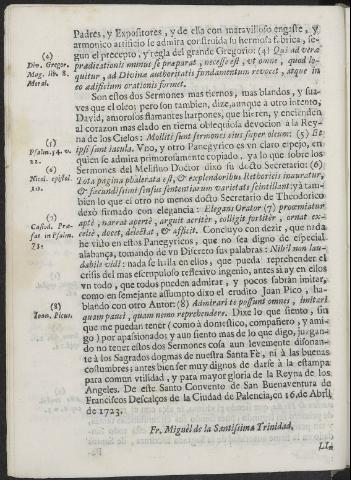 Padres, y Expositores, y de esta con maravilloso engaste, y
armonico artificio le admira construida su hermosa fabrica, se-
gun el precepto, y regla del grande Gregorio: (4) Qui ad vera
prædicationis munus se præparat, necesse est, ut omne, quod lo-
quitur, ad Divinæ authoritatis fundamentum revocet, atque in
eo ædificium orationis formet.
(4)
Div. Gregor.
Mag. lib. 8.
Moral.
Son estos dos Sermones mas tiernos, mas blandos, y sua-
ves que el oleo; pero son tambien, dize, aunque à otro intento,
David, amorosos flamantes harpones, que hieren, y encienden
al corazon mas elado en tierna obsequiosa devocion à la Rey-
na de los Cielos: Molliti sunt sermones eius super oleum: (5) Et
ipsi sunt iacula. Vno, y otro Panegyrico es vn claro espejo, en
quien se admira primorosamente copiado, y à lo que sobre los
Sermones del Melifluo Doctor dixo su docto Secretario: (6)
Tota pagina phalerata est, & explendoribus Rethoricis inauratur,
& fæcundissimi sensus sententiarum varietate scintillant: yà tam-
bien lo que el otro no menos docto Secretario de Theodorico
dexò firmado con elegancia: Elegans Orator (7) proœmiatur
aptè, narrat acorrè, arguit acriter, colligit fortiter, ornat ex-
celsè, docet, delectat, & afficit. Concluyo con dezir, que nada
he visto en estos Panegyricos, que no sea digno de especial
alabança, tomando de vn Discreto sus palabras: Nihil non lau-
dabile vidi: nada se halla en ellos, que pueda reprehender el
crisis del mas escrupuloso reflexivo ingenio, antes si ay en ellos
vn todo, que todos pueden admirar, y pocos sabràn imitar,
como en semejante assumpto dixo el erudito Juan Pico, ha-
blando con otro Autor: (8) Admirari te possunt omnes, imitari
quam pauci, quam nemo reprehendere. Dixe lo que siento, sin
que me puedan tener (como à domestico, compañero, y ami-
go) por apassionado; y aun siento mas de lo que digo, juzgan-
do no tener estos dos Sermones cosa aun levemente disonan-
te à los Sagrados dogmas de nuestra Santa Fè, ni à las buenas
costumbres; antes bien ser muy dignos de darse à la estampa
para comun vtilidad, y para mayor gloria de la Reyna de los
Angeles. De este Santo Convento de San Buenaventura de
Franciscos Descalços de la Ciudad de Palencia, en 16. de Abril
de 1723.
(5)
Psalm. 54. v.
22.
(6)
Nicol. epistol.
30.
(7)
Casiod. Præ-
fat. in Psalm.
73.
(8)
Joan. Picus.
Fr. Miguèl de la Santissima Trinidad.